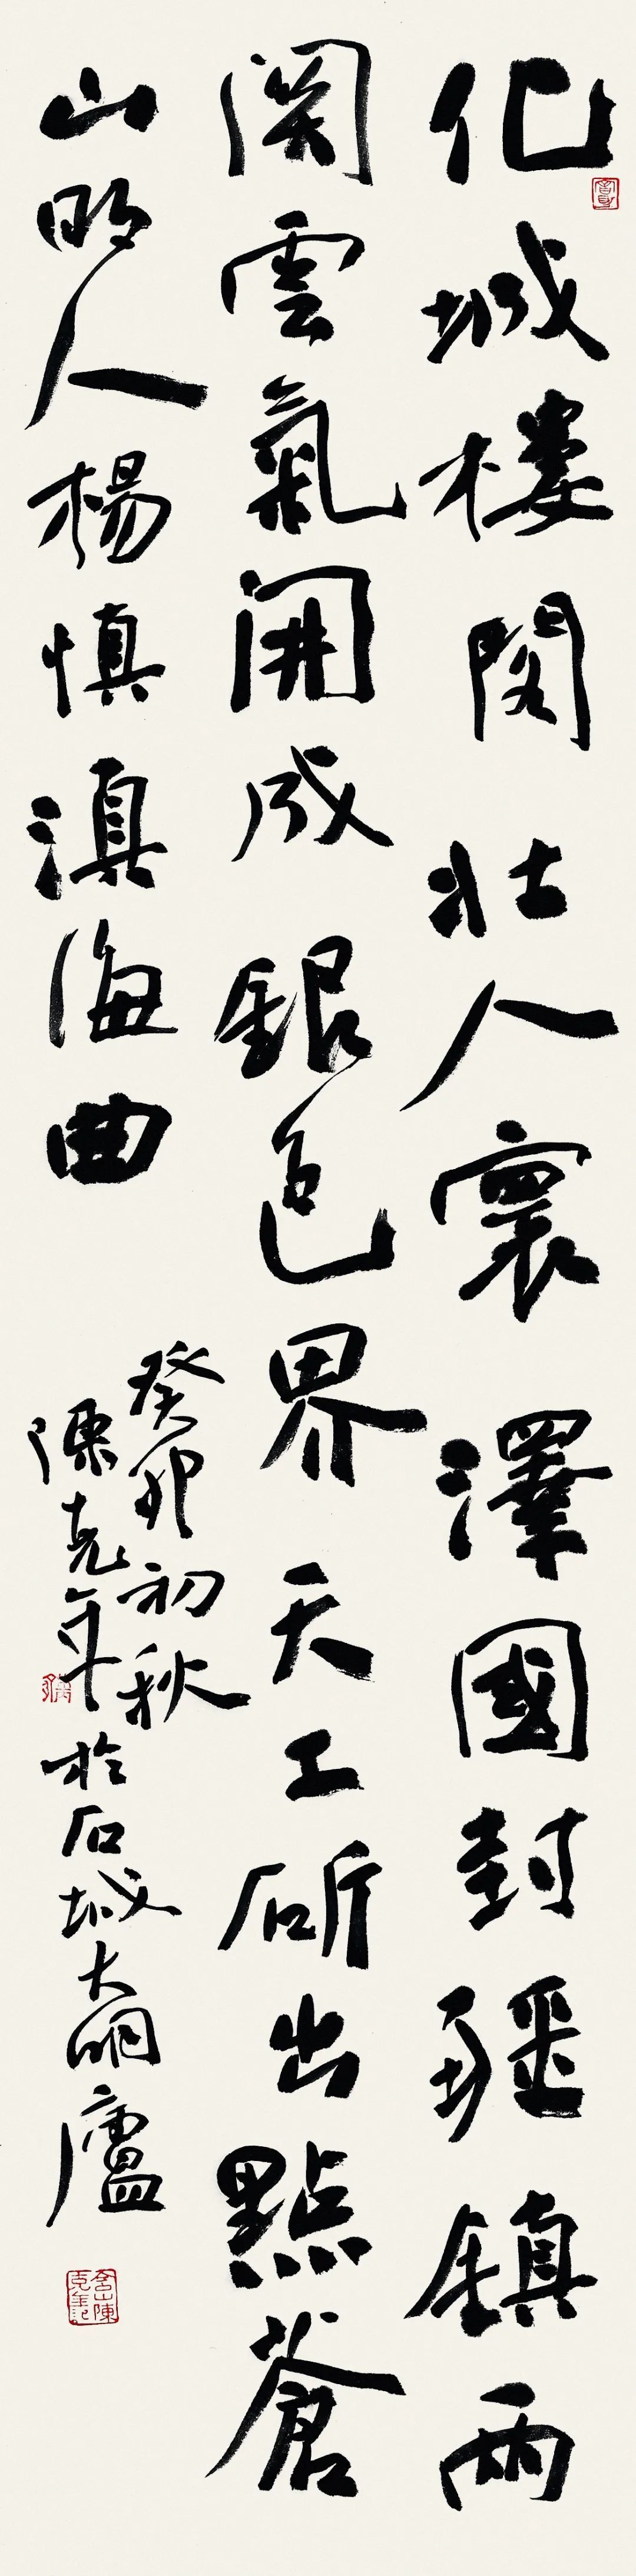 化城楼閣壮人寰澤國封疆鎮两
関雲氣開成銀色界天工斫出點蒼
山明人楊慎滇海曲
癸卯初秋
陳克年於石城大明廬